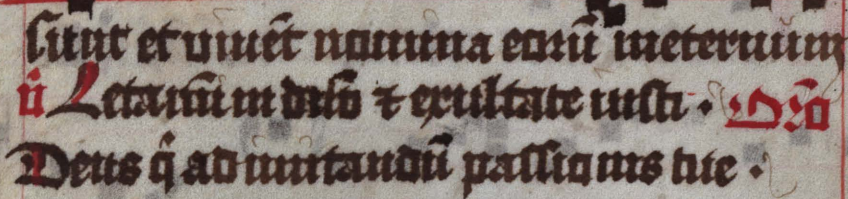 sunt et viuēt nomina eorū ineternum
v̄ Letamī in dn̄o ⁊ exultate iusti · Oro
Deus q̄ ad imitandū passionis tue ·